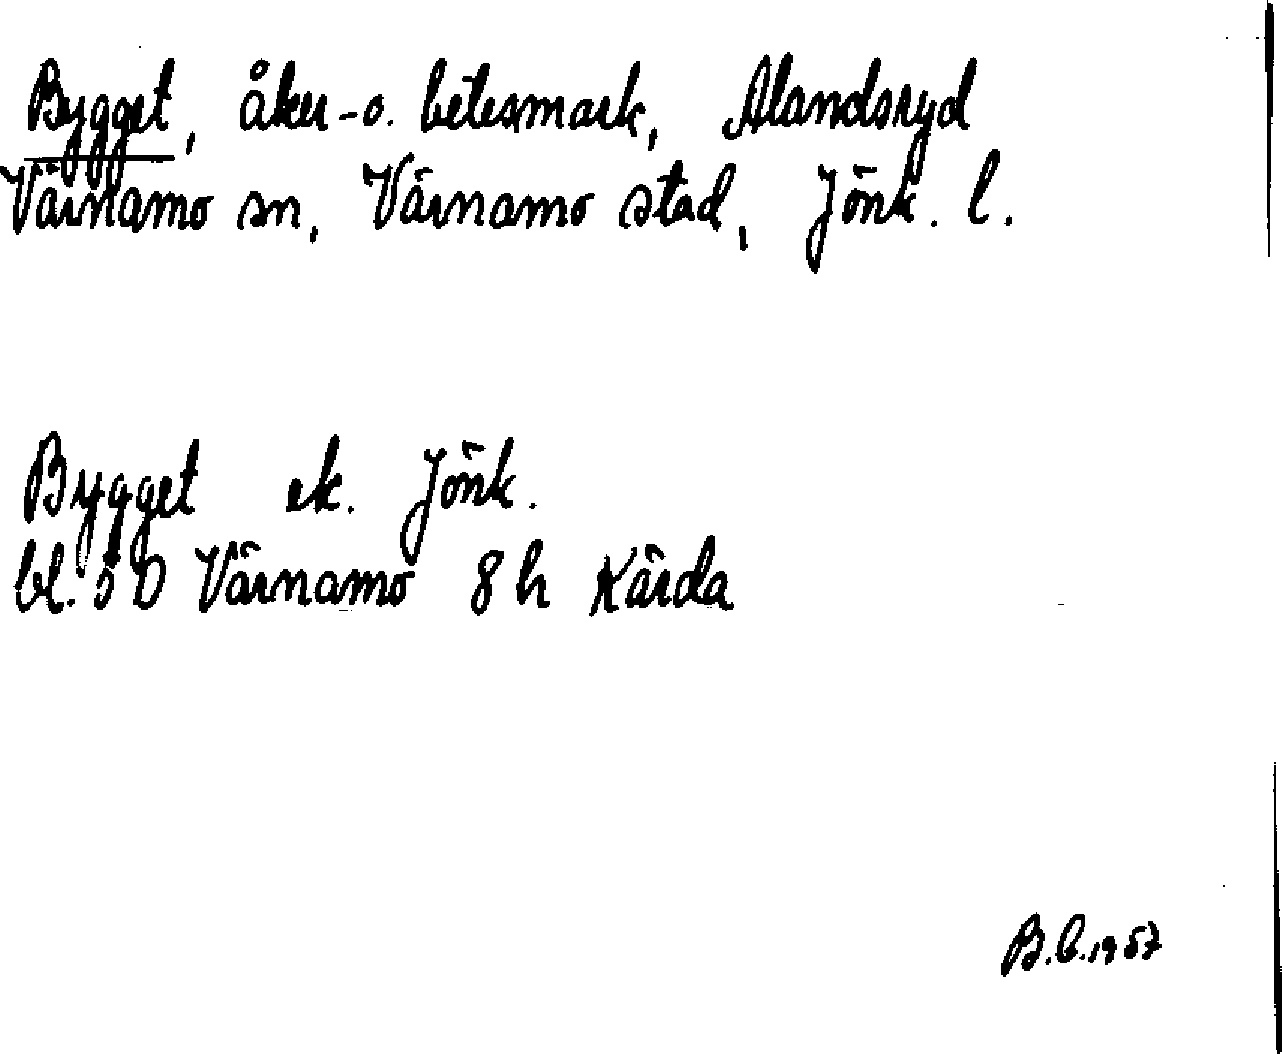 Bygget, åker- o. betesmark, Alandsryd
Värnamo sn, Värnamo stad, Jönk. l.
Bygget ek. Jönk.
bl. 5 D Värnamo 8 h Kärda
B.C. 1957